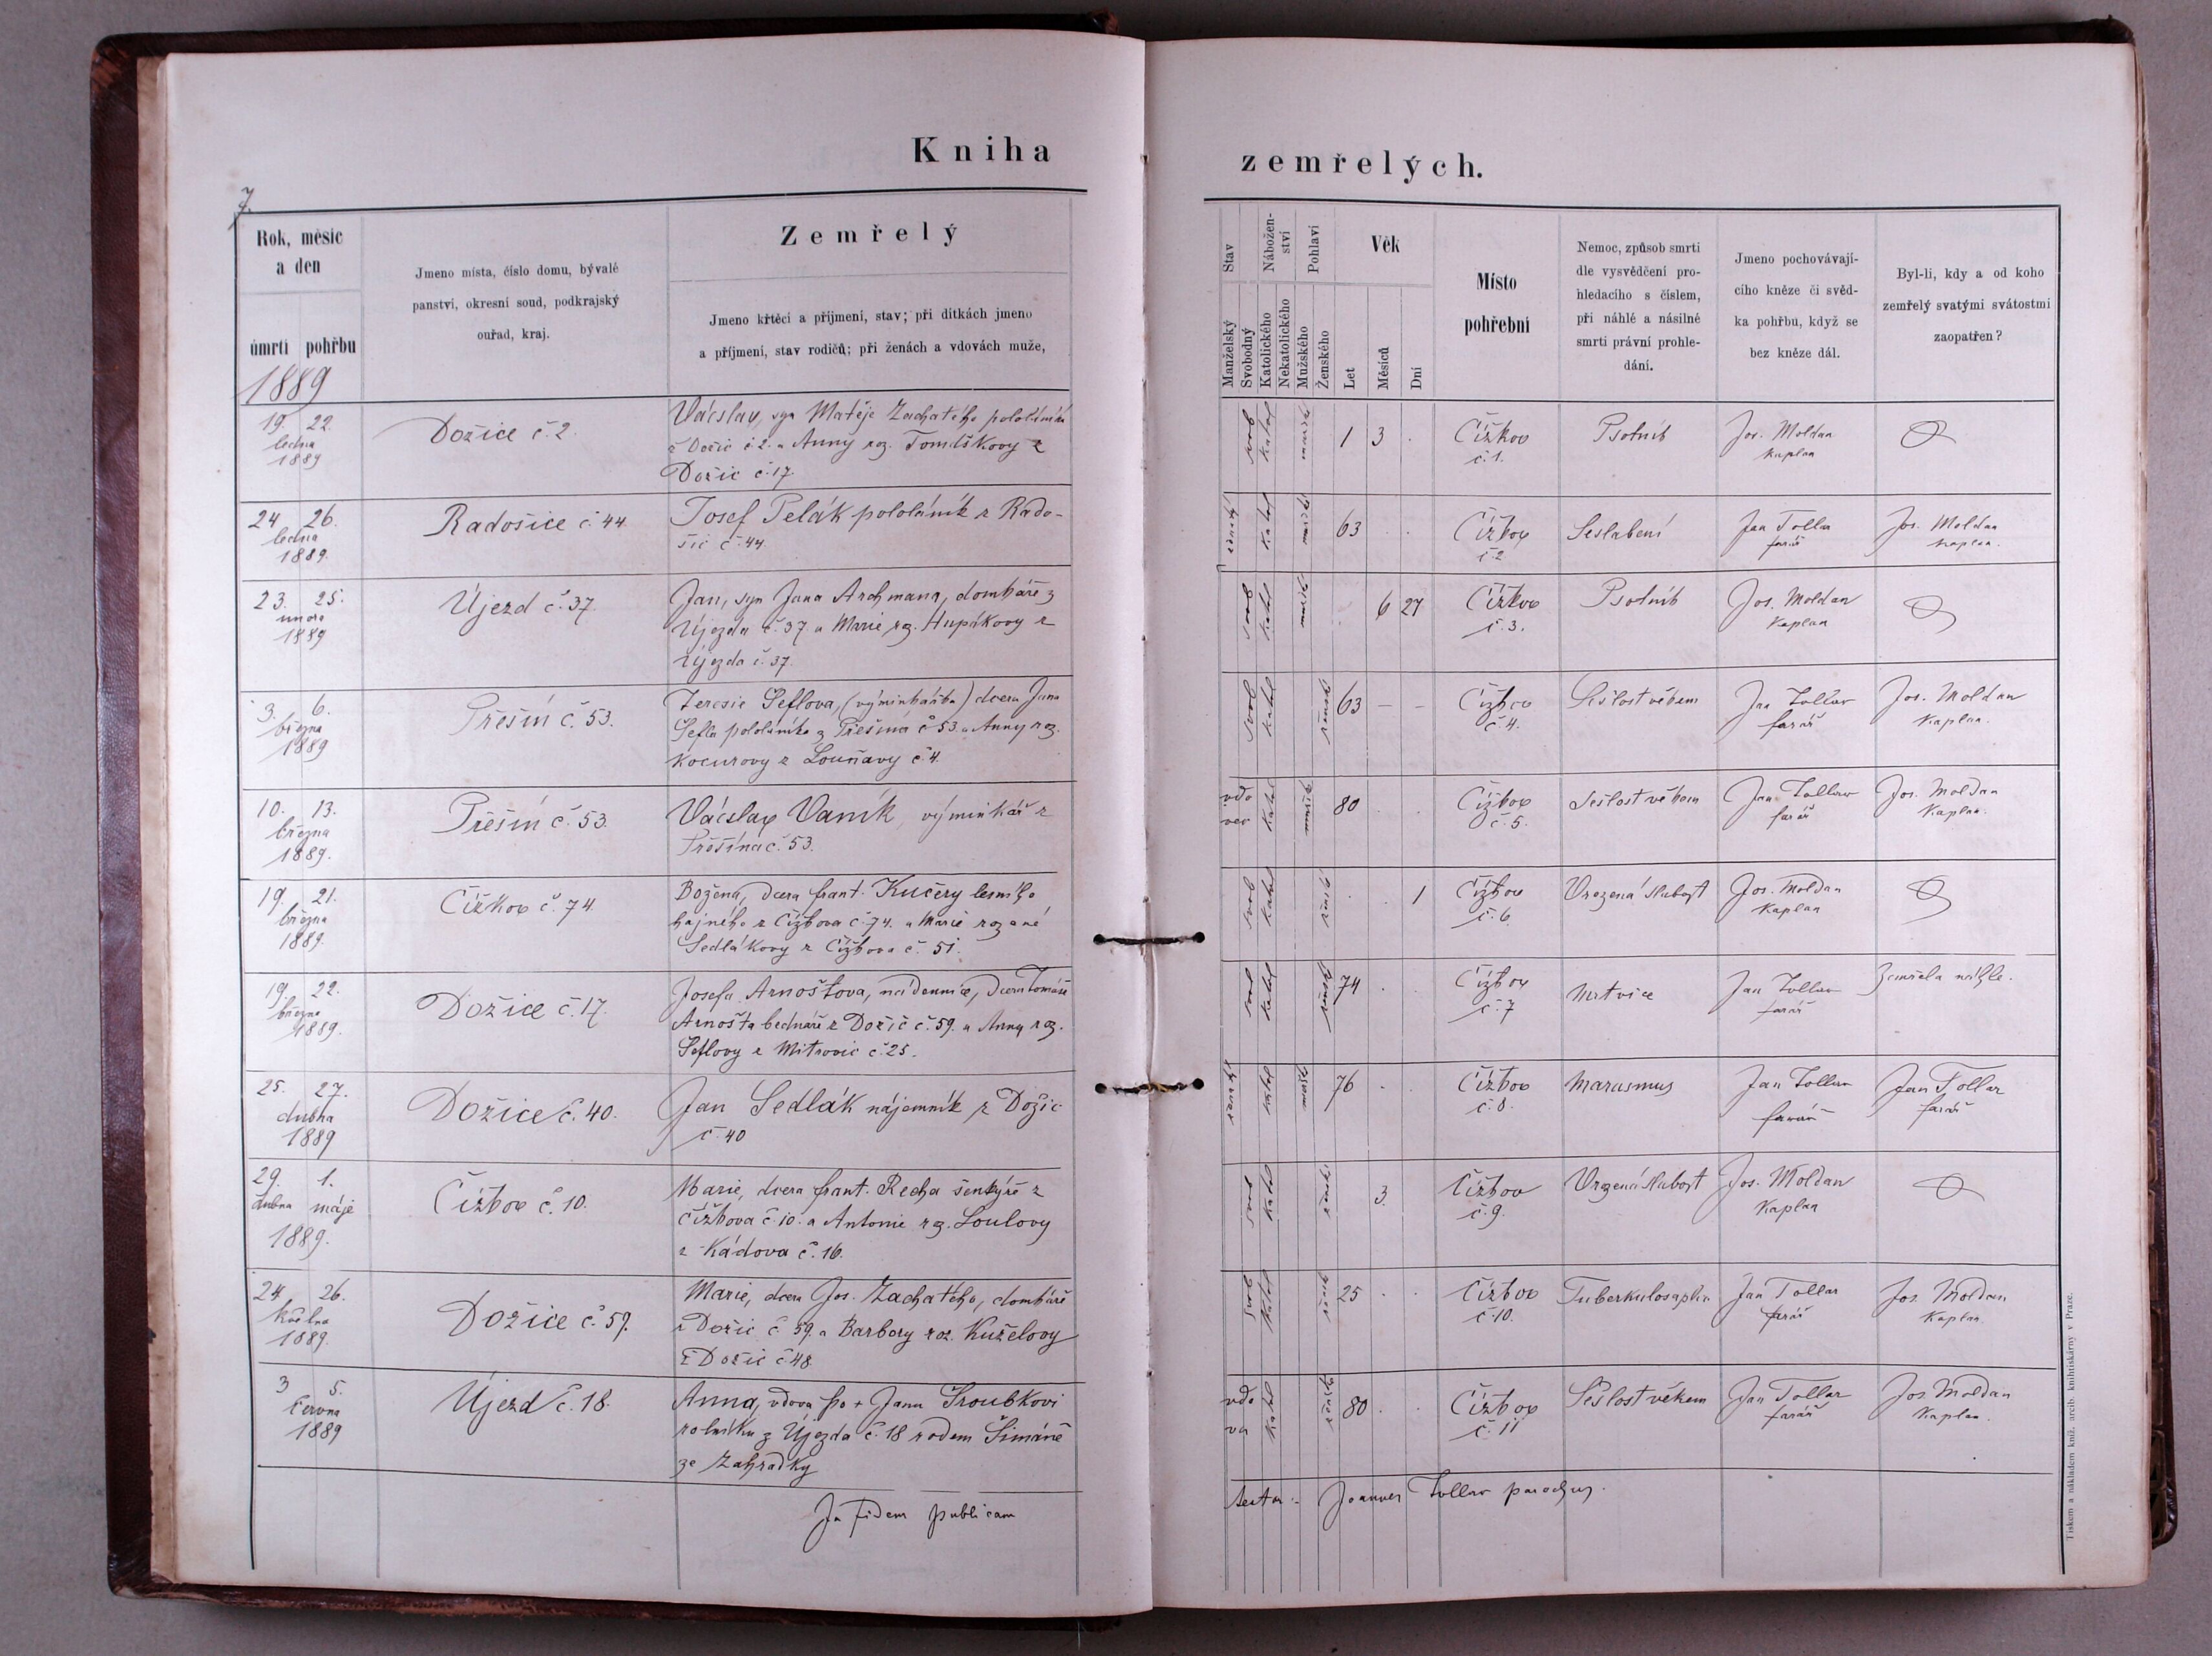 Kniha zemřelých.
7.
Rok, měsíc
a den
úmrtí pohřbu
Jmeno místa, číslo domu, bývalé
panství, okresní soud, podkrajský
ouřad, kraj.
Zemřelý
Jmeno křtěcí a příjmení, stav; při dítkách jmeno
a příjmení, stav rodičů; při ženách a vdovách muže,
Stav
Nábožen-
ství
Pohlaví
Věk
Manželský
Svobodný
Katolického
Nekatolického
Mužského
Ženského
Let
Měsíců
Dní
Místo
pohřební
Nemoc, způsob smrti
dle vysvědčení pro-
hledacího s číslem,
při náhlé a násilné
smrti právní prohle-
dání.
Jmeno pochovávají-
cího kněze či svěd-
ka pohřbu, když se
bez kněze dál.
Byl-li, kdy a od koho
zemřelý svatými svátostmi
zaopatřen?
1889
19. 22.
ledna
1889
Dožice č. 2.
Václav, syn Matěje Zachatého pololáníka
z Dožic č. 2. a Anny roz. Tomáškovy z
Dožic č. 17
svob katol mužsk 1 3 .
Čížkov
č. 1.
Psotník
Jos. Moldan
Kaplan
24 26.
ledna
1889.
Radošice č 44.
Josef Pelák pololáník z Rado-
šic č. 44.
ženatý katol mužsk 63 . .
Čížkov
č 2
Seslabení
Jan Tollar
farář
Jos. Moldan
kaplan.
23. 25.
února
1889
Újezd č. 37.
Jan, syn Jana Archmana, domkáře z
Újezda č. 37. a Marie roz. Hupákovy z
Újezda č. 37.
svob katol mužsk 6 27
Čížkov
č. 3.
Psotník
Jos. Moldan
Kaplan
3. 6.
března
1889
Přešín č. 53.
Terezie Šeflova, (výminkářka) dcera Jana
Šefla pololáníka z Přešína č 53. a Anny roz.
Kocurovy z Louňavy č. 4.
svob katol ženské 63 – –
Čížkov
č. 4.
Sešlost věkem
Jan Tollar
farář
Jos. Moldan
Kaplan.
10. 13.
března
1889.
Přešín č. 53.
Václav Vaník, výminkář z
Přešína č. 53.
vdo
vec katol mužsk 80 . .
Čížkov
č. 5.
Sešlost věkem
Jan Tollar
farář
Jos. Moldan
Kaplan.
19. 21.
března
1889.
Čížkov č. 74.
Božena, dcera Frant. Kučery lesního
hajného z Čížkova č. 74. a Marie rozené
Sedlákovy z Čížkova č. 51.
svob katol ženské . . 1
Čížkov
č. 6.
Vrozená slabost
Jos. Moldan
Kaplan
19. 22.
března
1889.
Dožice č. 17.
Josefa Arnoštova, nádennice, dcera Tomáše
Arnošta bednáře z Dožič č. 59. a Anny roz.
Šeflovy z Mitrovic č. 25.
svob katol ženské 74 . .
Čížkov
č. 7
Mrtvice
Jan Tollar
farář
Zemřela náhle.
25. 27.
dubna
1889
Dožice č. 40.
Jan Sedlák nájemník z Dožic
č. 40
ženatý katol mužsk 76 . .
Čížkov
č. 8.
Marasmus
Jan Tollar
farář
Jan Tollar
farář
29. 1.
dubna máje
1889.
Čížkov č. 10.
Marie, dcera Frant. Recha šenkýře z
Čížkova č. 10. a Antonie roz. Loulovy
z Kádova č. 16.
svob katol ženské 3.
Čížkov
č. 9.
Vrozená slabost
Jos. Moldan
Kaplan
24 26.
května
1889.
Dožice č. 59.
Marie, dcera Jos. Zachatého, domkáře
z Dožic č. 59. a Barbory roz. Kuželovy
z Dožic č. 48.
svob katol ženské 25 . .
Čížkov
č. 10.
Jan Tollar
farář
Jos. Moldan
Kaplan.
3 5.
června
1889
Újezd č. 18.
Anna, vdova po + Janu Šroubkovi
rolníku z Újezda č. 18 rodem Šimáně
ze Zahrádky
vdo
va katol ženské 80 . .
Čížkov
č. 11
Sešlost věkem
Jan Tollar
farář
Jos. Moldan
Kaplan.
In fidem publicam
Joannes Tollar parochus.
Tiskem a nákladem kníž. arcib. knihtiskárny v Praze.